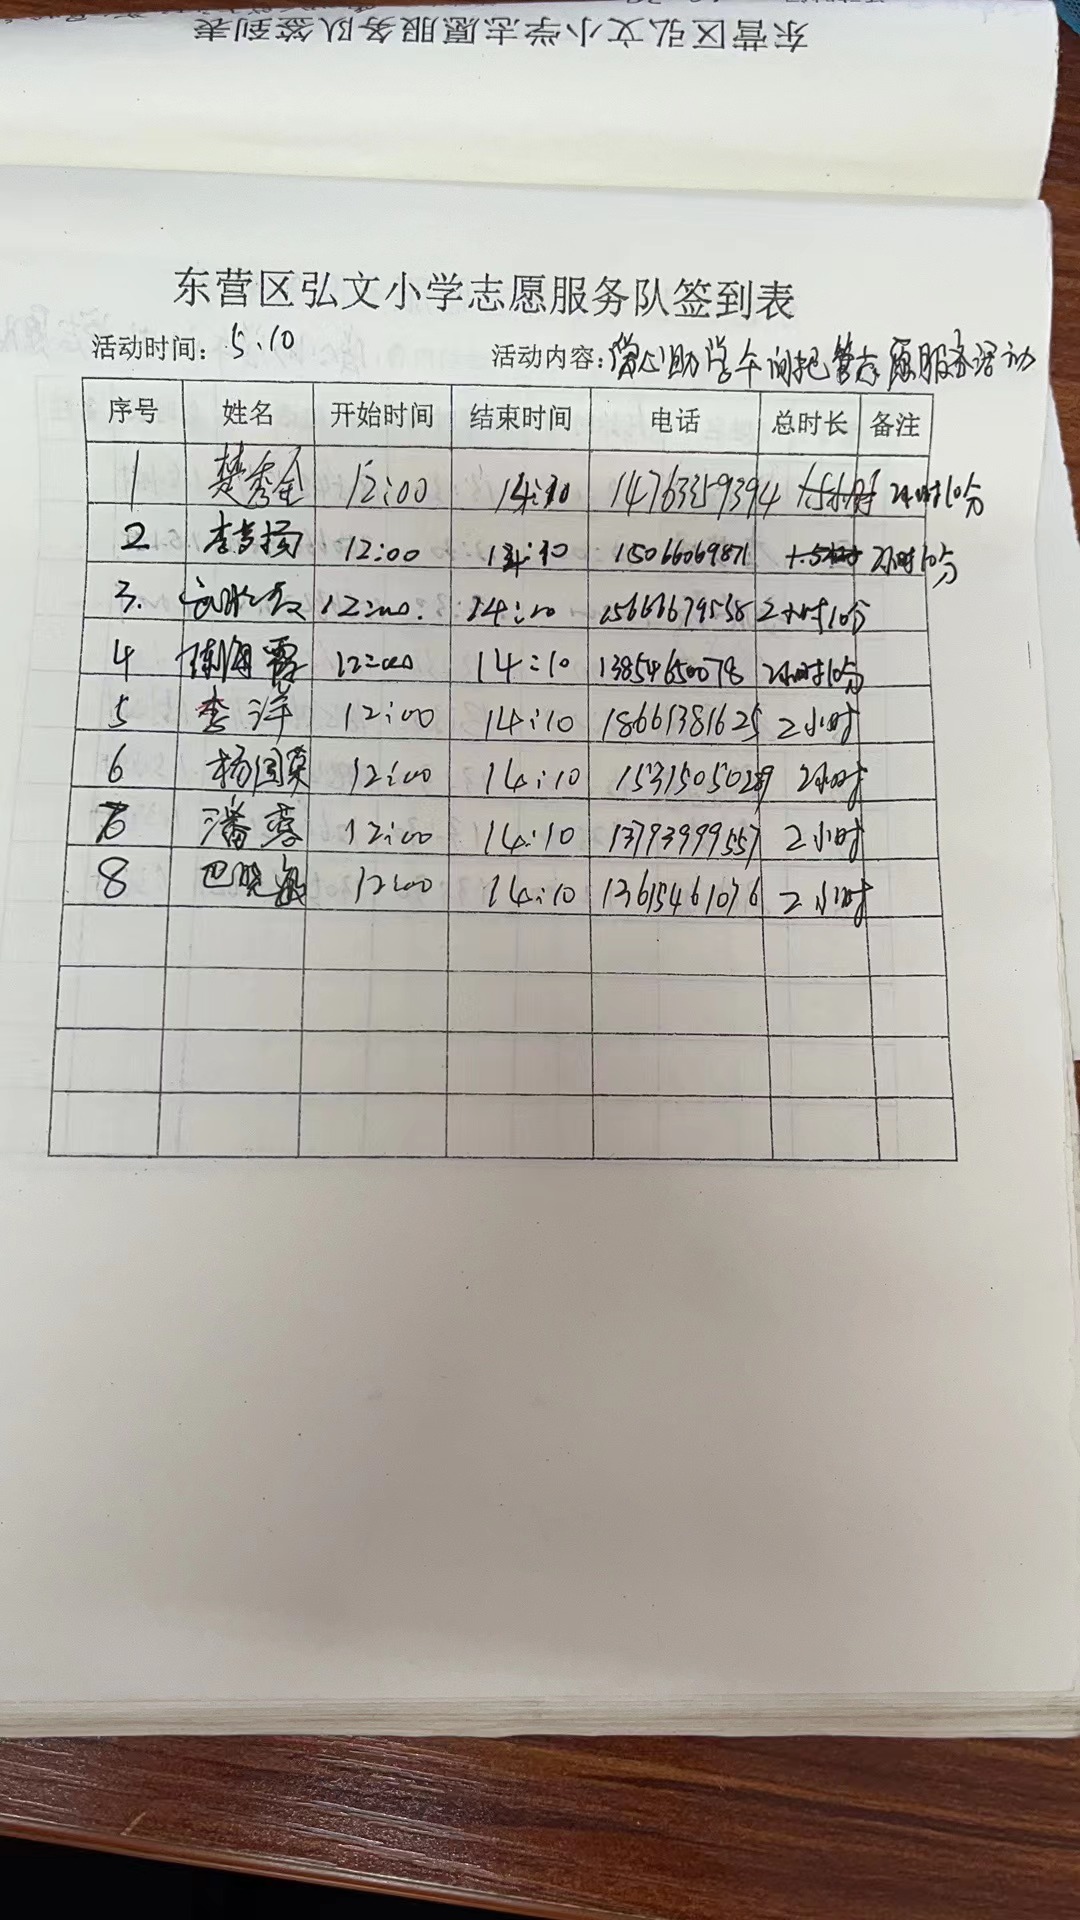 东营区弘文小学志愿服务队签到表
东营区弘文小学志愿服务队签到表
活动时间：5.10 活动内容：爱心助学午间托管志愿服务活动
序号 姓名 开始时间 结束时间 电话 总时长 备注
1 楚秀全 12:00 14:10 14763359394 2小时10分
2 12:00 14:10 15066069871 2小时10分
3. 12:00. 14:10 2小时10分
4 陈海霞 12:00 14:10 13854650078 2小时10分
5 李洋 12:00 14:10 18661381625 2小时
6 杨国英 12:00 14:10 15315050289 2小时
潘蓉 12:00 14:10 13793999557 2小时
8 巴晓敏 12:00 14:10 13615461076 2小时